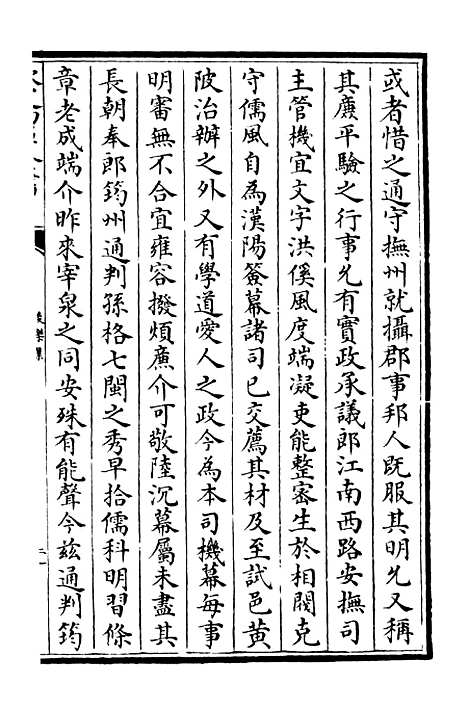 或者惜之通守撫州就攝郡事邦人既服其明允又稱
其廉平驗之行事允有實政承議郎江南西路安撫司
主管機宜文字洪傒風度端凝吏能整密生於相閥克
守儒風自為漢陽簽幕諸司已交薦其材及至試邑黄
陂治辦之外又有學道愛人之政今為本司機幕毎事
明審無不合宜雍容撥煩亷介可敬陸沉幕屬未盡其
長朝奉郎筠州通判孫格七閩之秀早拾儒科明習條
章老成端介昨來宰泉之同安殊有能聲今兹通判筠